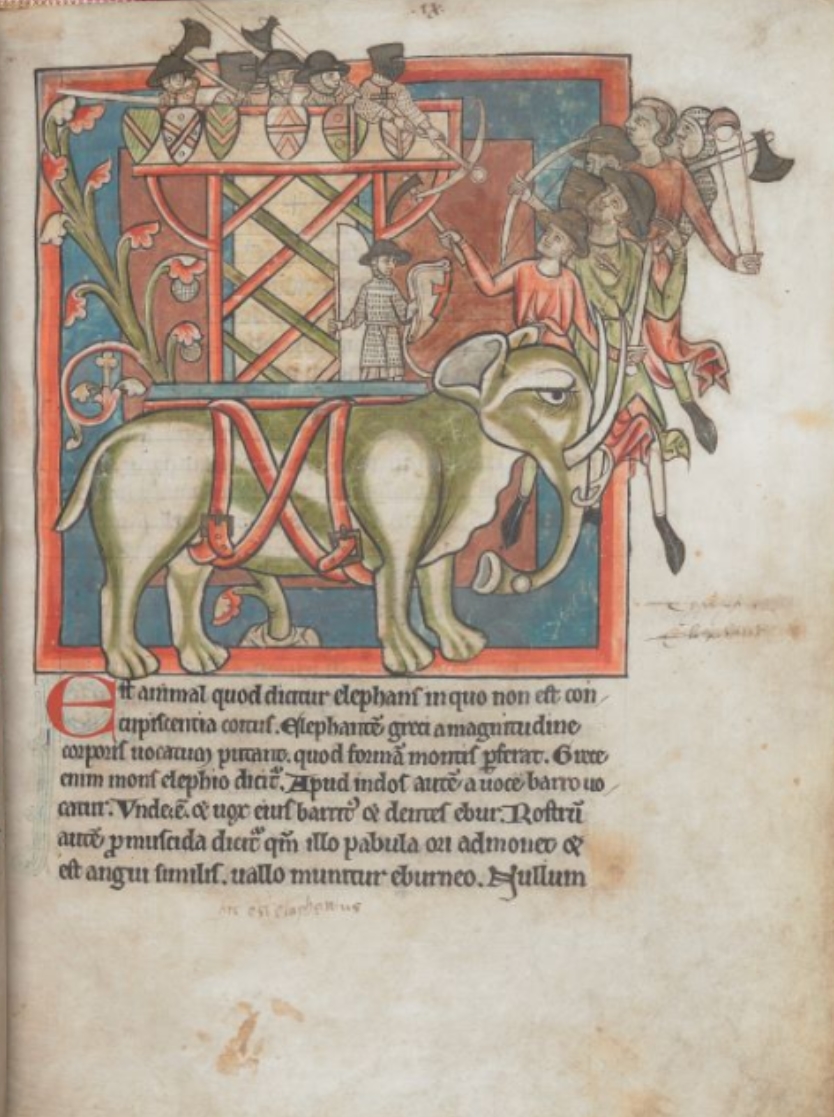 Est animal quod dicitur elephans in quo non est con
cupiscentia coitus. Elephantē greci a magnitudine
corporis uocatum putant. quod formā montis p̄ferat. Grece
enim mons elephio dicit᷑. Apud indos autē a uoce barro uo
catur. Vnde ē. & uox eius barrit᷒ & dentes ebur. Rostrū
autē ꝓmuscida dicit᷑ qm̄ illo pabula ori admouet &
est angui similis. uallo munitur eburneo. Nullum
hic est elephantus